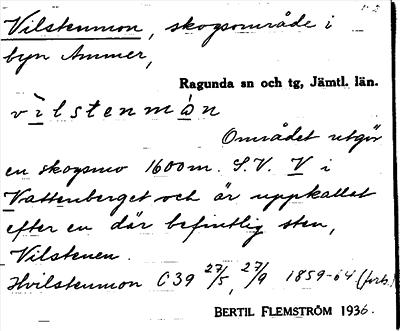 Vilstenmon, skogsområde i
byn Ammer,
Ragunda sn och tg, Jämtl. län.
vìlstenmὰn
Området utgör
en skogsmo 1600 m. S.V. V i
Vattenberget och är uppkallat
efter en där befintlig sten,
Vilstenen.
Hvilstenmon C39 27/5, 27/9 1859-64 (fork.)
BERTIL FLEMSTRÖM 1936.